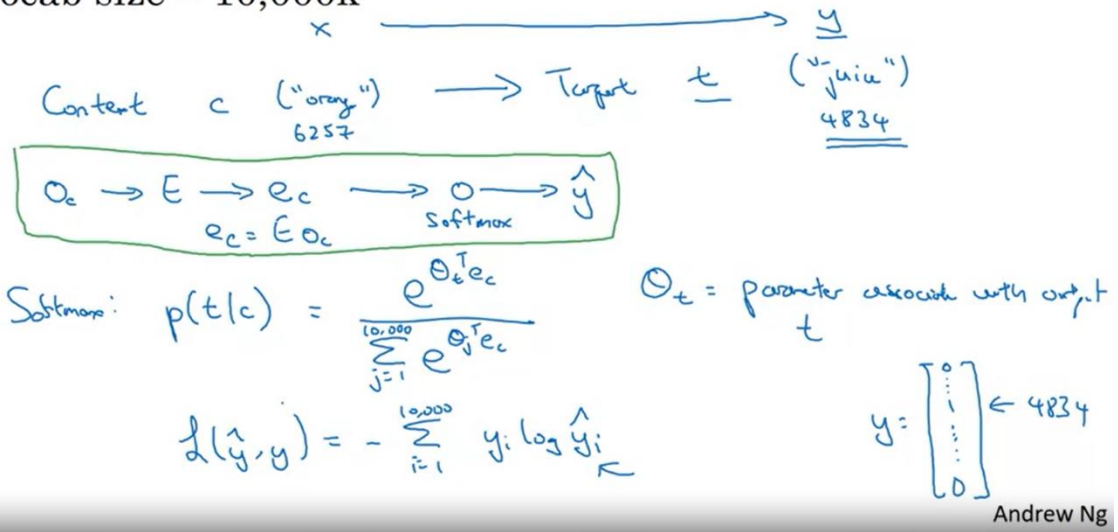 x ⟶ y
Content c ("orang") ⟶ Target t ("juice")
6257 4834
O_c → E → e_c ⟶ o ⟶ ŷ
e_c = E O_c Softmax
Softmax: p(t|c) = e^{θ_t^T e_c} / Σ_{j=1}^{10,000} e^{θ_j^T e_c} θ_t = parameter associate with output
t
ℒ(ŷ, y) = - Σ_{i=1}^{10,000} y_i log ŷ_i y = [0 ⋮ 1 ⋮ 0] ← 4834
Andrew Ng